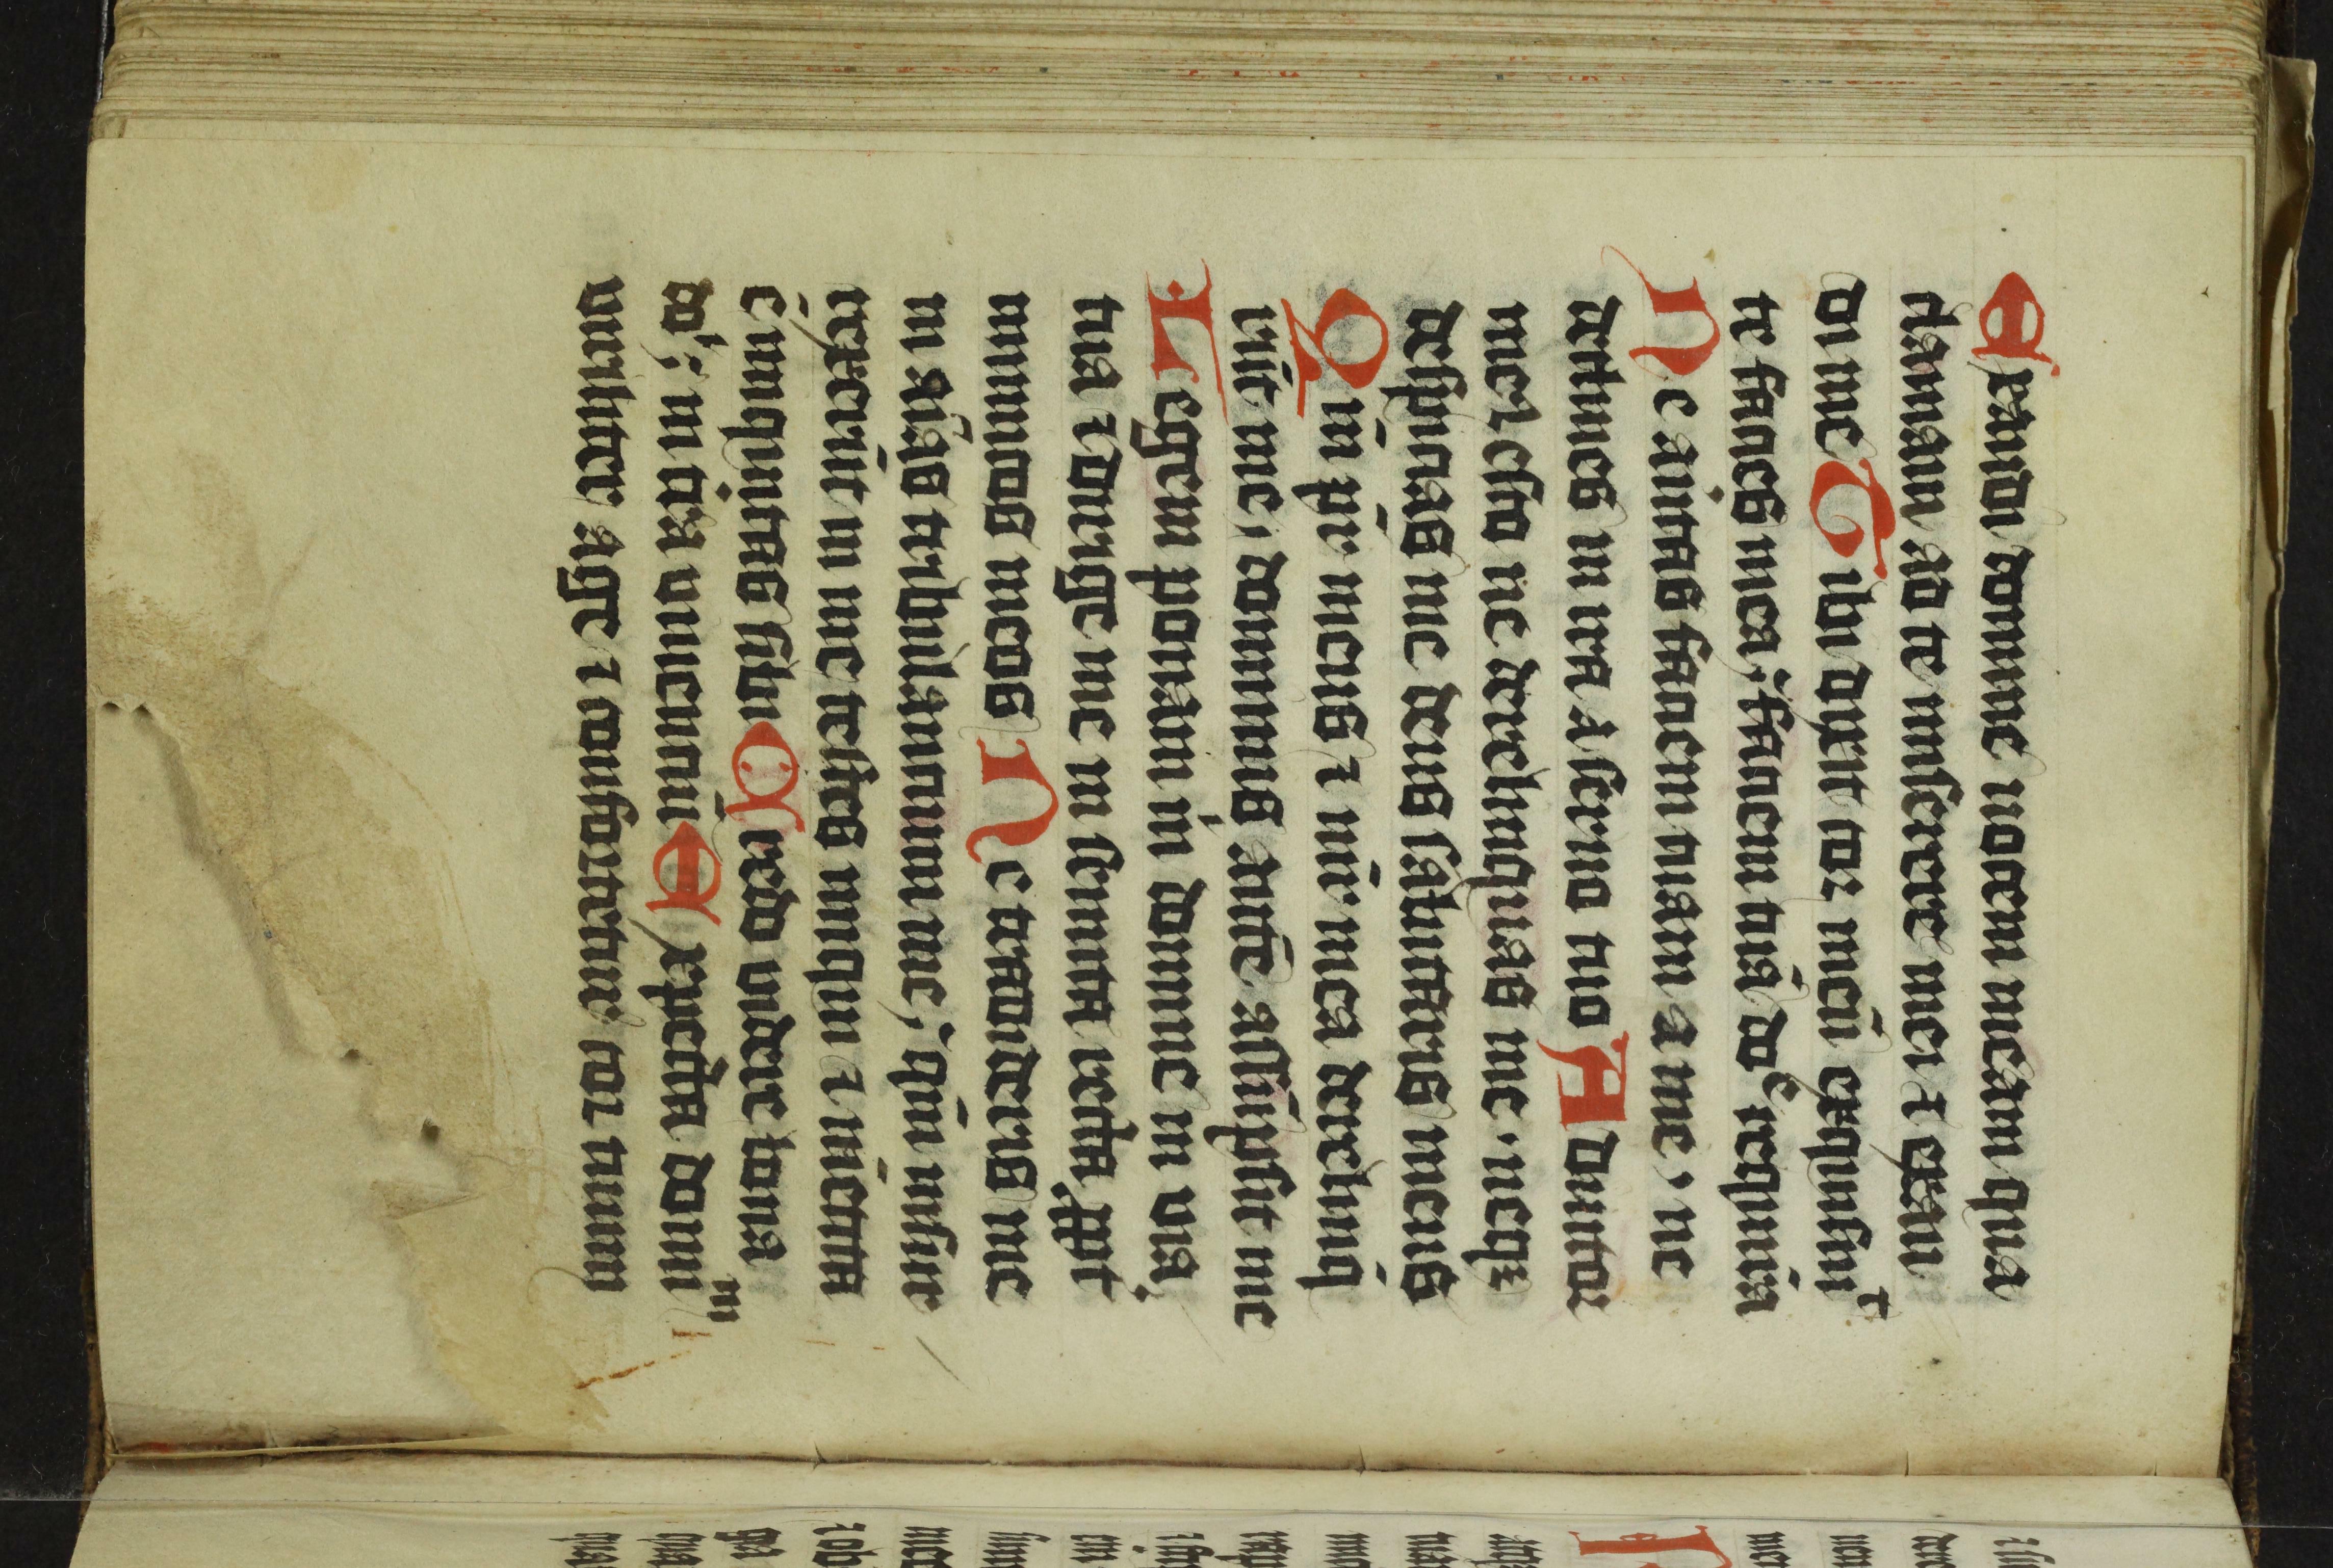 Exaudi domine uocem meam qua
clamaui ad te miserere mei ⁊ exau
di me Tibi dixit cor meū exquisiuᵗ
te facies mea; faciem tuā dn̄e requirā
Ne auertas faciem tuam a me · ne
declines in ira a seruo tuo Adiutor
mei esto ne derelinquas me · neqȝ
despicias me deus salutaris meus
Qm̄ pr̄ meus ⁊ mr̄ mea dereliuq̄
rūt me · dominus autē assūpsit me
Legem pone m̄ domine in uia
tua ⁊ dirige me in semita recta, ppt̄
inimicos meos Ne tradideris me
in aīas tribulancium me; qm̄ insur
rexerūt in me testes iniqui ⁊ mētita
ē iniquitas sibi Credo videre bona
dn̄i; in tra viuenciū Expecta domi
nū
viriliter age ⁊ confortetur cor tuum